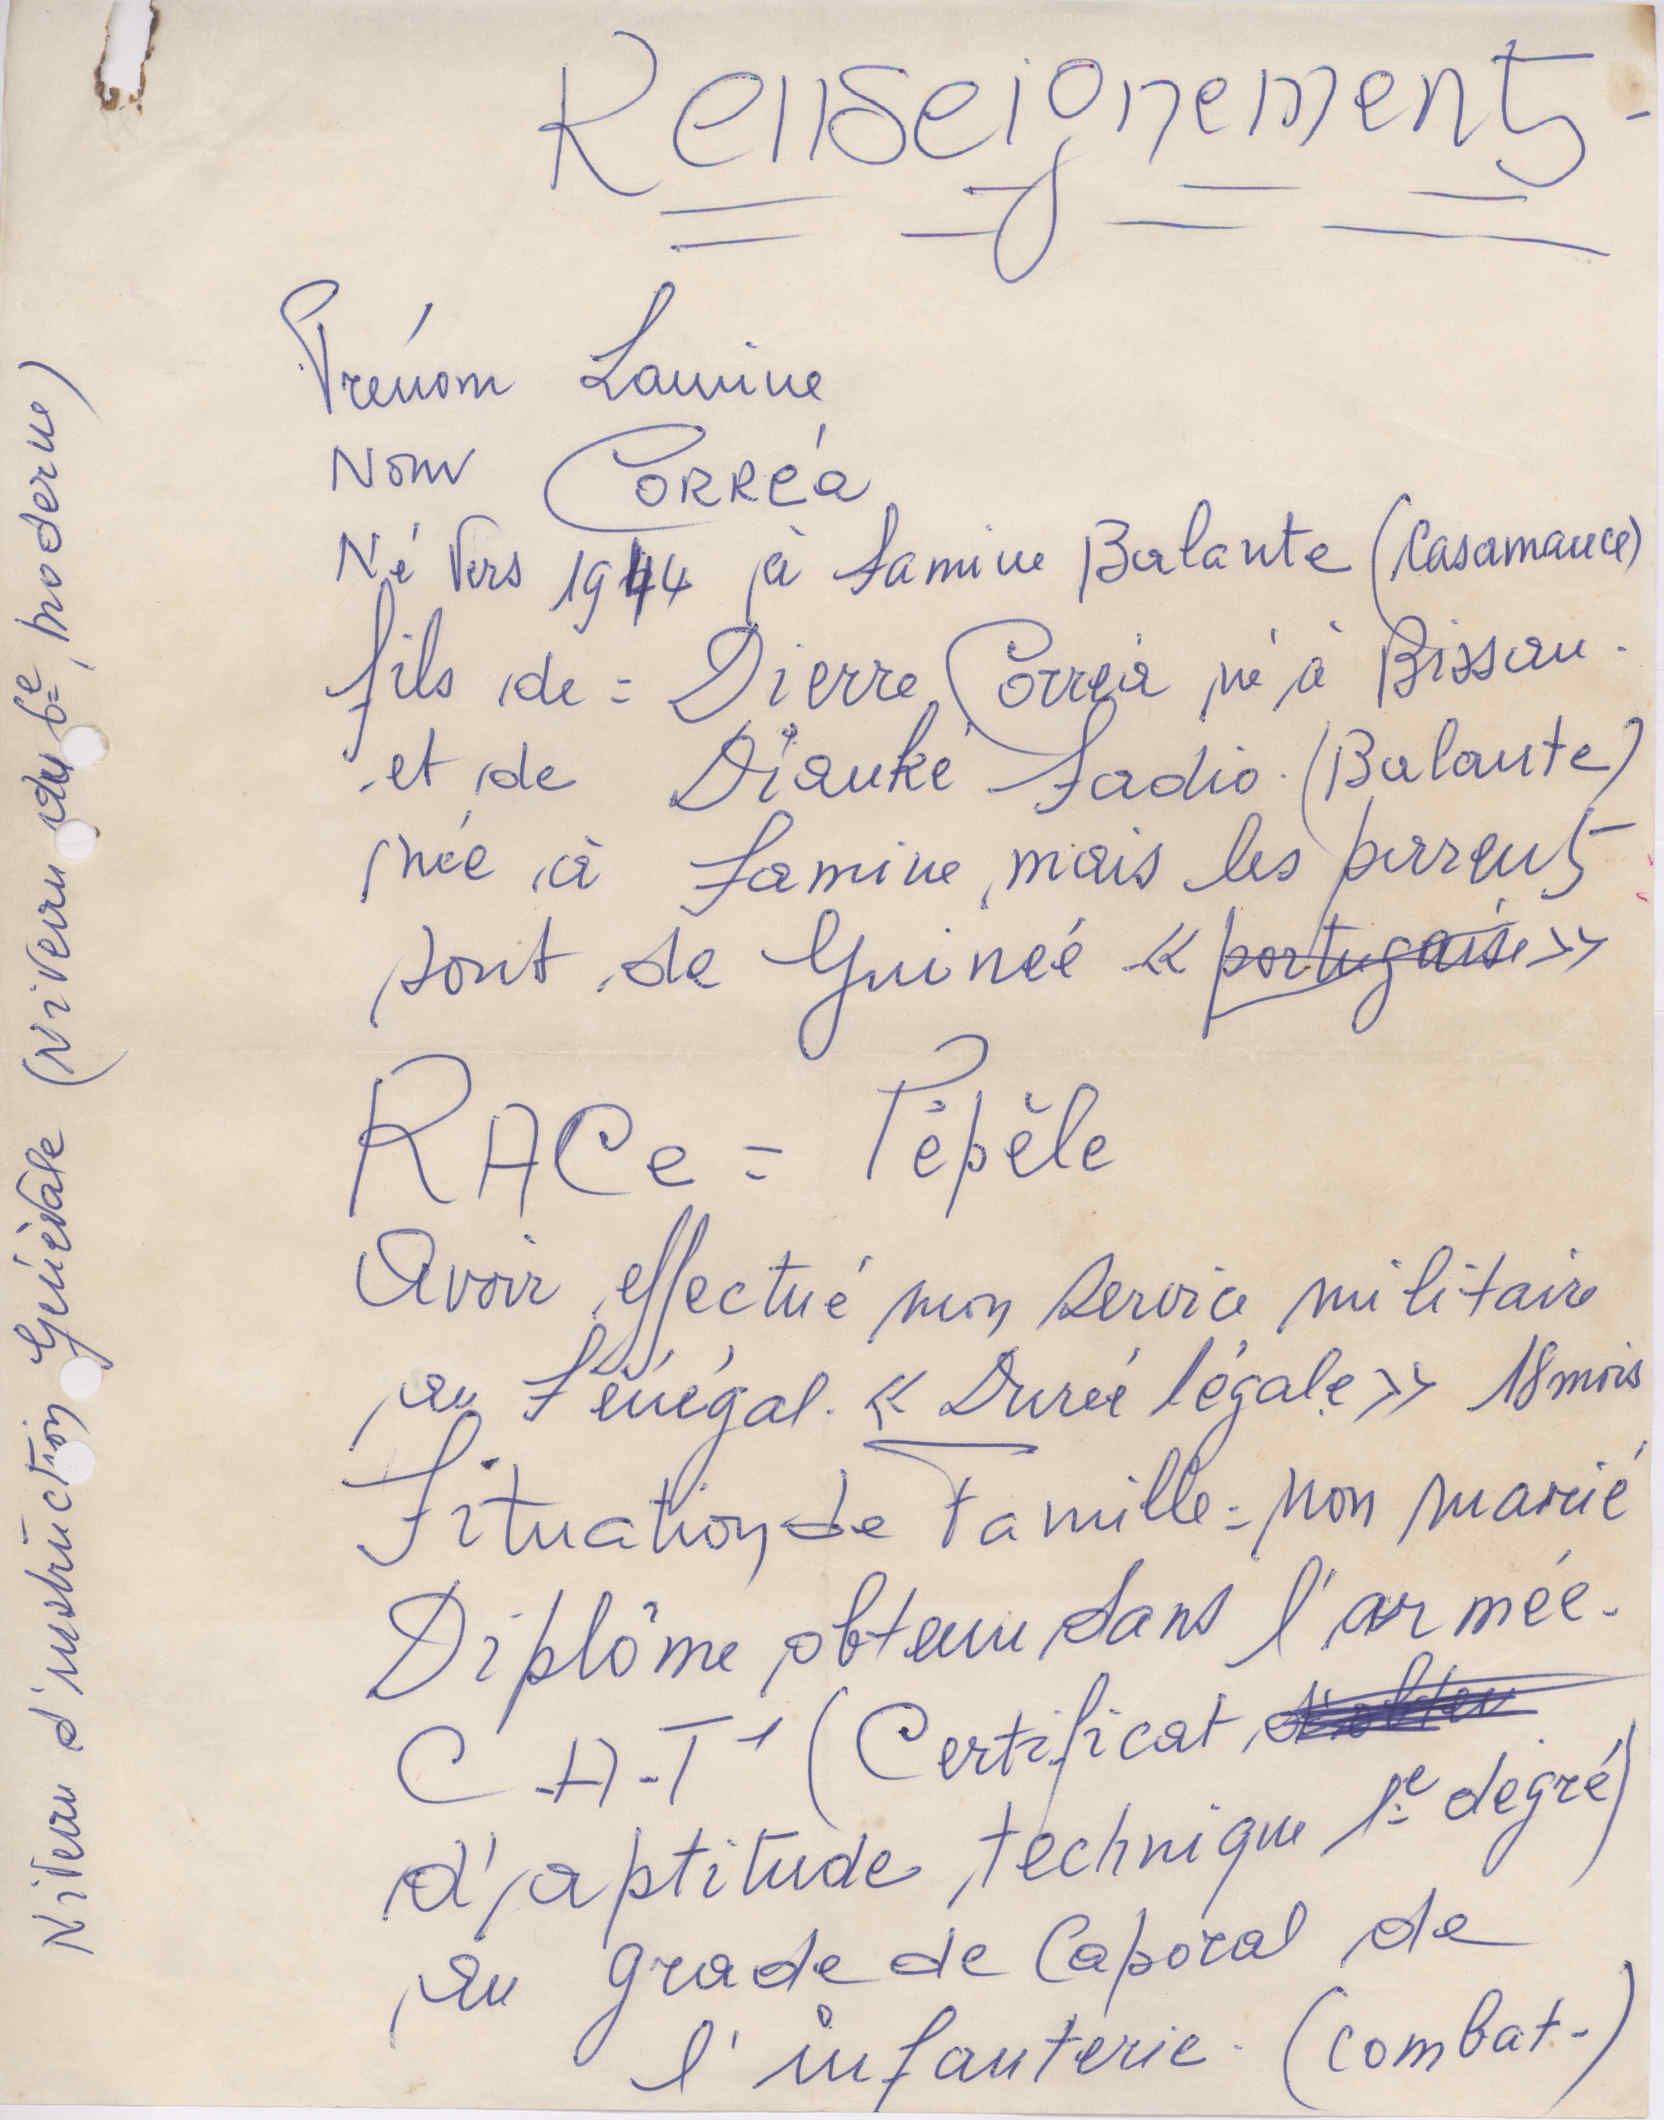 Renseignements -
Prénom Lamine
Nom Corréa
Né vers 1944 à Samine Balante (Casamance)
fils de = Pierre Corréa né à Bissau.
et de Diauké Sadio. (Balante)
née à Samine, mais les parents
sont de Guineé « portugaise »
RACe = Pépèle
Avoir effectué mon Service militaire
au Sénégal. « Dureé légale » 18 mois
Situation de Famille = non marié
Diplôme obtenu dans l'armée -
C-A-T 1 (Certificat d'obten
d'aptitude technique 1e degré)
au grade de Caporal de
l'infanterie. (combat-)
Niveau d'instruction Générale (Niveau du 6e moderne)